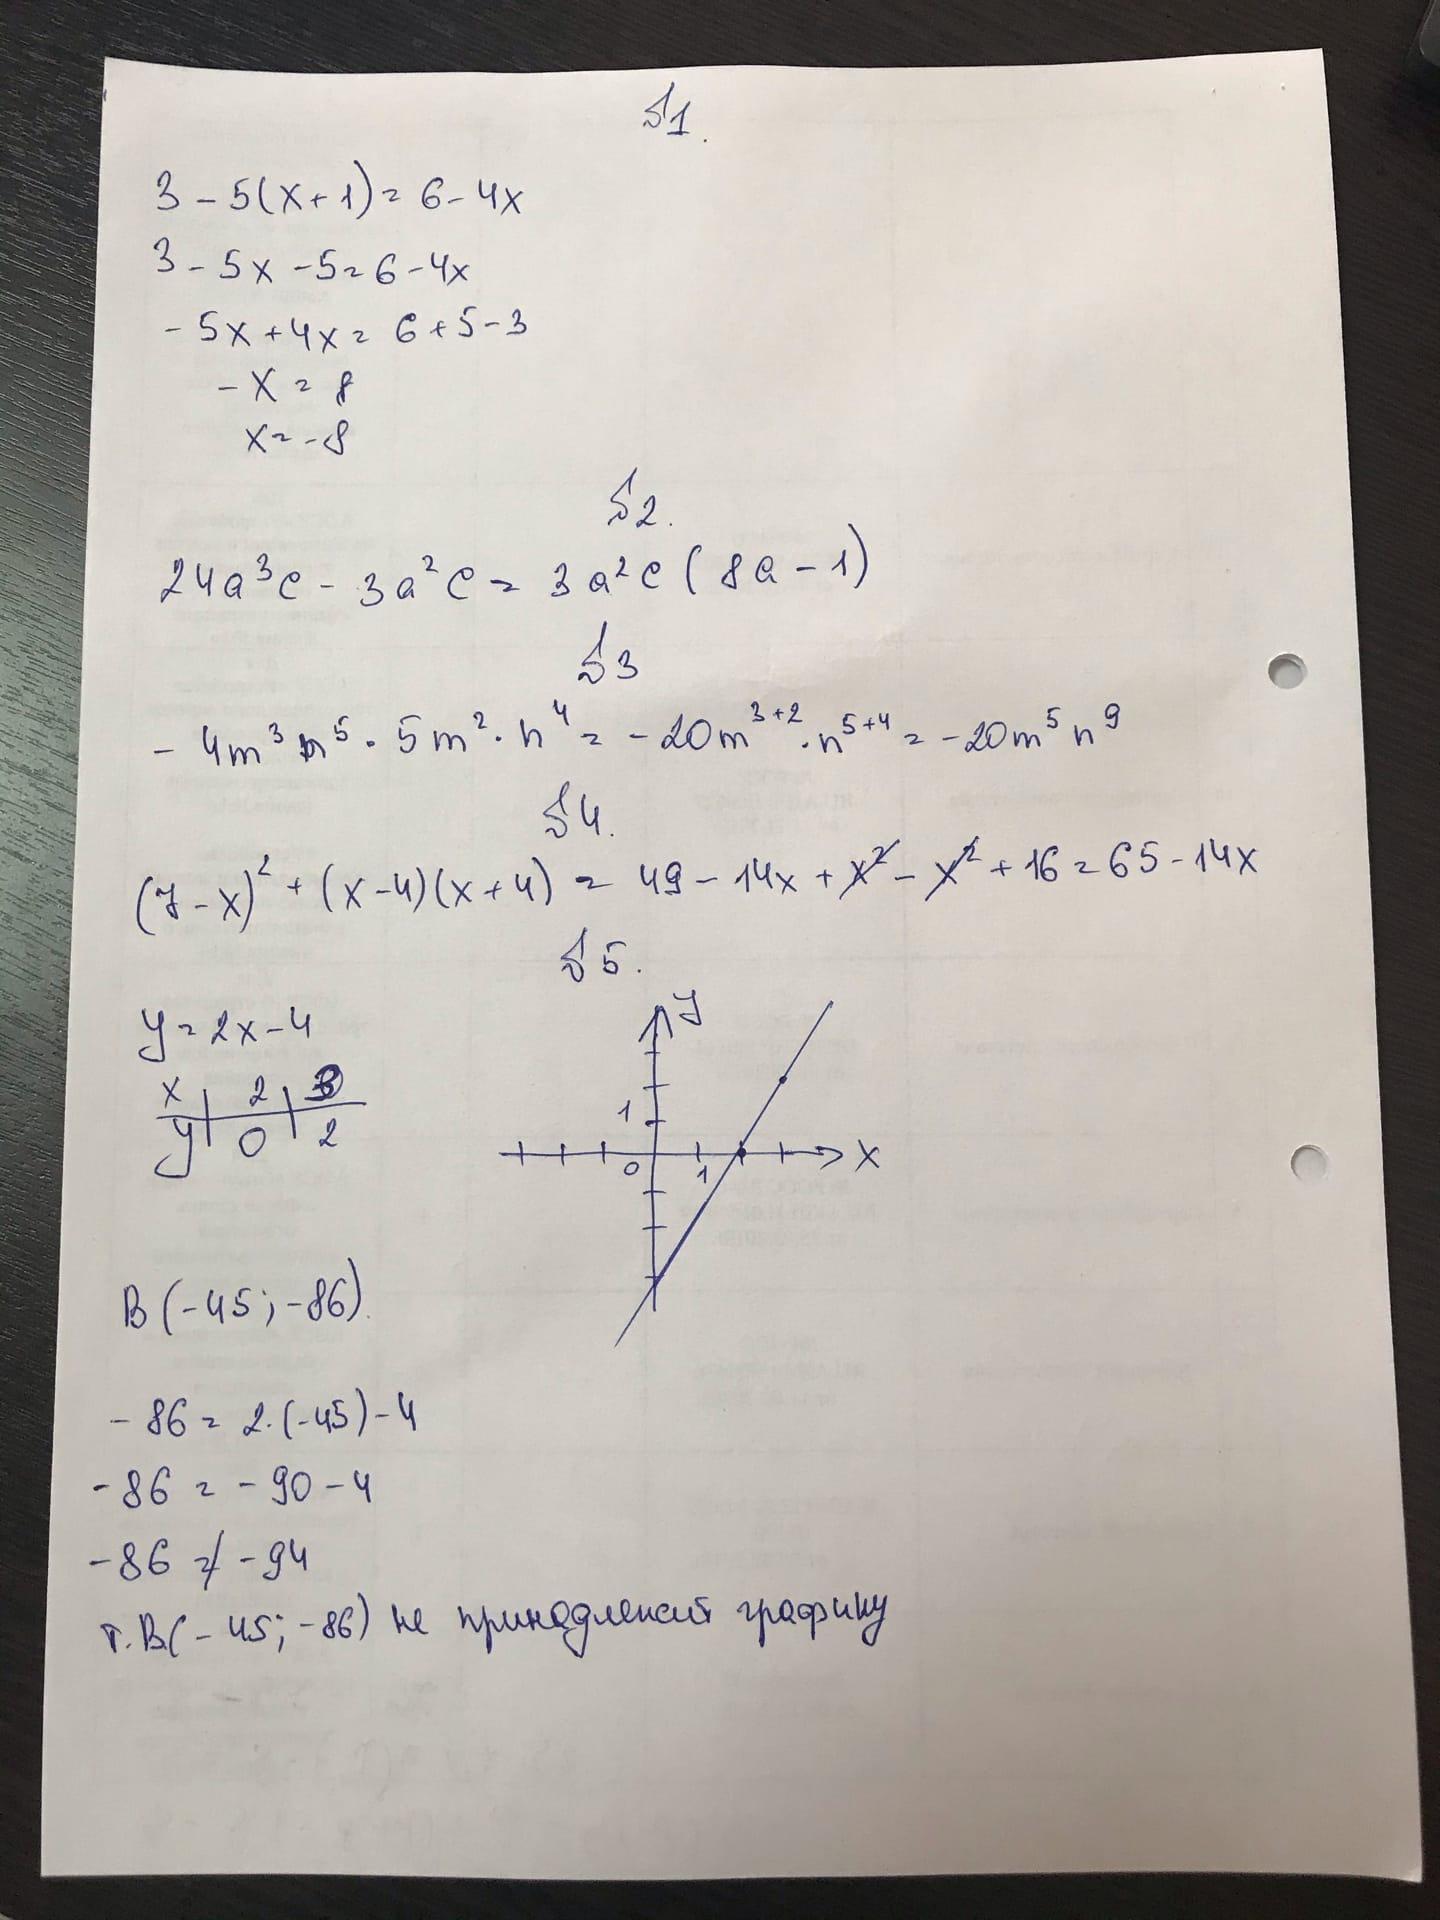 №1.
3 - 5(x + 1) = 6 - 4x
3 - 5x - 5 = 6 - 4x
- 5x + 4x = 6 + 5 - 3
- x = 8
x = -8
№2.
24a³c - 3a²c = 3a²c (8a - 1)
№3
- 4m³n⁵ · 5m² · n⁴ = -20m³⁺² · n⁵⁺⁴ = -20m⁵n⁹
№4.
(7 - x)² + (x - 4)(x + 4) = 49 - 14x + x² - x² + 16 = 65 - 14x
№5.
y = 2x - 4
x | 2 | 3
y | 0 | 2
y
1
0 1 x
B (-45; -86).
- 86 = 2·(-45) - 4
- 86 = - 90 - 4
- 86 ≠ - 94
т. B(- 45; -86) не принадлежит графику